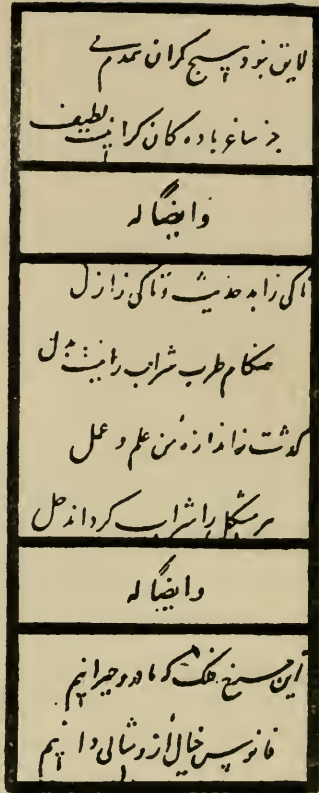 لایق نبود هیچ گران همدم می
جز ساغر باده کان گرانیست لطیف
وایضاً له
تا کی ز ابد حدیث و تا کی ز ازل
هنگام طرب شراب را نیست بدل
بگذشت ز اندازهٔ من علم و عمل
هر مشکل را شراب گرداند حل
وایضاً له
این چرخ فلک که ما درو حیرانیم
فانوس خیال ازو مثالی دانیم